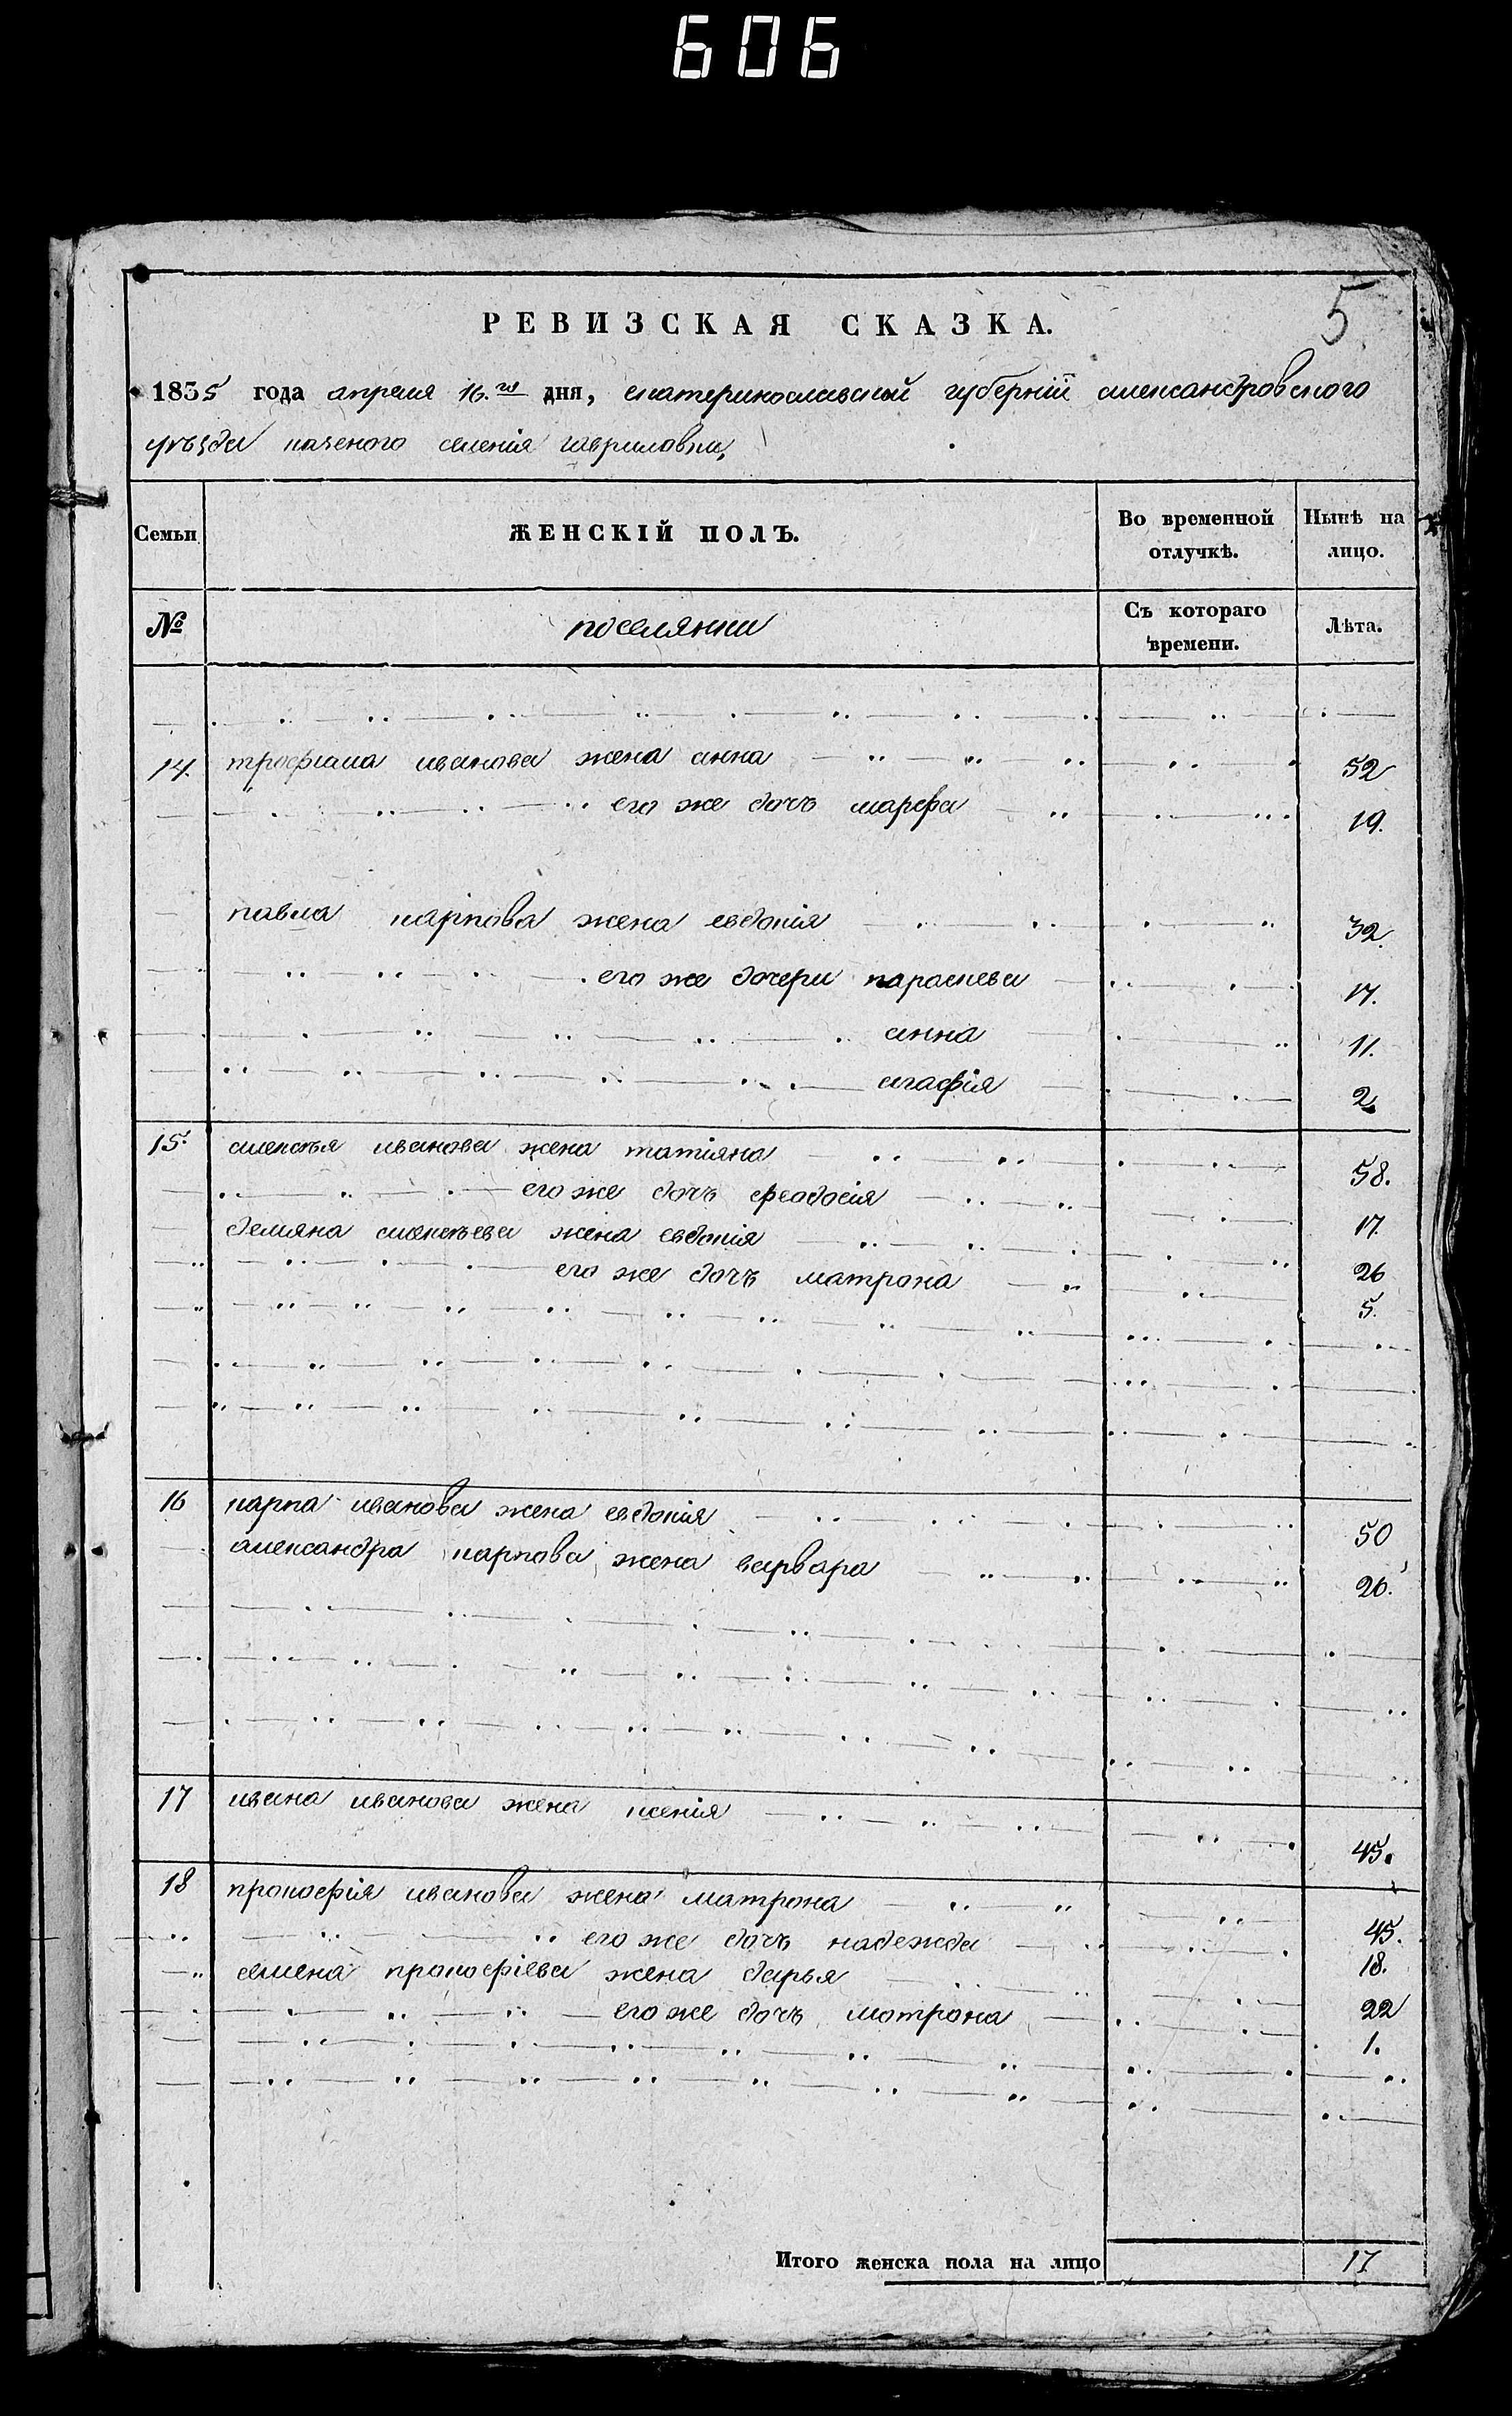 606
5
РЕВИЗСКАЯ СКАЗКА.
1835 года апреля 16.го дня, екатеринославской губерніи александровского
уѣзда казеного селенія гавриловки,
Семьи
ЖЕНСКІЙ ПОЛЪ.
Во временной отлучкѣ.
Нынѣ на лицо.
№
поселянки
Съ котораго времени.
Лѣта.
14. трофима иванова жена анна 52
его же дочъ марфа 19.
павла карпова жена евдокія 32.
его же дочери параскева 17.
анна 11.
агафія 2.
15. алексѣя иванова жена татіяна 58.
его же дочъ феодосія 17.
демяна алексѣева жена евдокія 26
его же дочъ матрона 5.
16 карпа иванова жена евдокія 50
александра карпова жена варвара 26.
17 ивана иванова жена ксенія 45.
18 прокофія иванова жена матрона 45.
его же дочъ надежда 18.
семена прокофіева жена дарья 22
его же дочъ матрона 1.
Итого женска пола на лицо 17